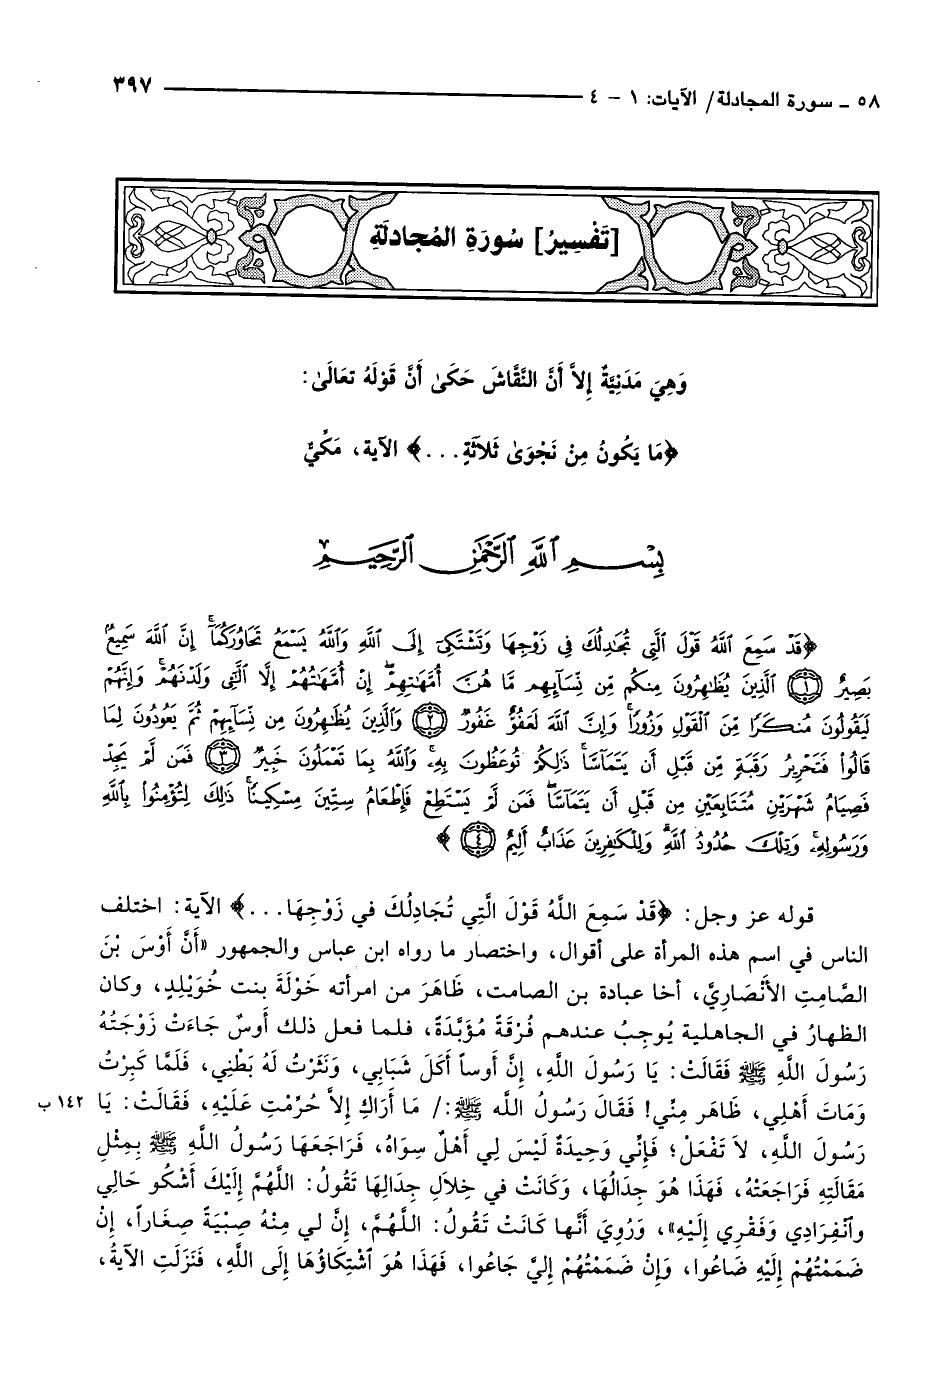 ٥٨ ـ سورة المجادلة/ الآيات: ١ - ٤ ٣٩٧
[تَفْسِيرُ] سُورَةِ المُجادلَةِ
وَهِيَ مَدَنِيَّةٌ إلاَّ أَنَّ النَّقَّاشَ حَكَىٰ أَنَّ قَوْلَهُ تعَالَىٰ:
﴿مَا يَكُونُ مِنْ نَجْوَىٰ ثَلاثَةٍ...﴾ الآية، مَكِّيٌّ
بِسْمِ ٱللَّهِ ٱلرَّحْمَٰنِ ٱلرَّحِيمِ
﴿قَدْ سَمِعَ ٱللَّهُ قَوْلَ ٱلَّتِي تُجَٰدِلُكَ فِي زَوْجِهَا وَتَشْتَكِيٓ إِلَى ٱللَّهِ وَٱللَّهُ يَسْمَعُ تَحَاوُرَكُمَآۚ إِنَّ ٱللَّهَ سَمِيعُۢ
بَصِيرٌ ١ ٱلَّذِينَ يُظَٰهِرُونَ مِنكُم مِّن نِّسَآئِهِم مَّا هُنَّ أُمَّهَٰتِهِمْۖ إِنْ أُمَّهَٰتُهُمْ إِلَّا ٱلَّٰٓـِٔي وَلَدْنَهُمْۚ وَإِنَّهُمْ
لَيَقُولُونَ مُنكَرًا مِّنَ ٱلْقَوْلِ وَزُورًاۚ وَإِنَّ ٱللَّهَ لَعَفُوٌّ غَفُورٌ ٢ وَٱلَّذِينَ يُظَٰهِرُونَ مِن نِّسَآئِهِمْ ثُمَّ يَعُودُونَ لِمَا
قَالُوا۟ فَتَحْرِيرُ رَقَبَةٍ مِّن قَبْلِ أَن يَتَمَآسَّاۚ ذَٰلِكُمْ تُوعَظُونَ بِهِۦۚ وَٱللَّهُ بِمَا تَعْمَلُونَ خَبِيرٌ ٣ فَمَن لَّمْ يَجِدْ
فَصِيَامُ شَهْرَيْنِ مُتَتَابِعَيْنِ مِن قَبْلِ أَن يَتَمَآسَّاۖ فَمَن لَّمْ يَسْتَطِعْ فَإِطْعَامُ سِتِّينَ مِسْكِينًاۚ ذَٰلِكَ لِتُؤْمِنُوا۟ بِٱللَّهِ
وَرَسُولِهِۦۚ وَتِلْكَ حُدُودُ ٱللَّهِۗ وَلِلْكَٰفِرِينَ عَذَابٌ أَلِيمٌ ٤﴾
قوله عز وجل: ﴿قَدْ سَمِعَ اللَّهُ قَوْلَ الَّتِي تُجَادِلُكَ في زَوْجِهَا...﴾ الآية: اختلف
الناس في اسم هذه المرأة على أقوال، واختصار ما رواه ابن عباس والجمهور «أَنَّ أَوْسَ بْنَ
الصَّامِتِ الأَنْصَارِيَّ، أخا عبادة بن الصامت، ظَاهَرَ من امرأته خَوْلَةَ بنت خُوَيْلِدٍ، وكان
الظهارُ في الجاهلية يُوجِبُ عندهم فُرْقَةً مُؤَبَّدَةً، فلما فعل ذلك أوسٌ جَاءَتْ زَوْجَتُهُ
رَسُولَ اللَّهِ ﷺ فَقَالَتْ: يَا رَسُولَ اللَّهِ، إِنَّ أوساً أَكَلَ شَبَابِي، وَنَثَرْتُ لَهُ بَطْنِي، فَلَمَّا كَبِرْتُ
وَمَاتَ أَهْلِي، ظَاهَر مِنِّي! فَقَالَ رَسُولُ الله ﷺ:/ مَا أَرَاكِ إِلاَّ حُرِّمْتِ عَلَيْهِ، فَقَالَتْ: يَا ١٤٢ ب
رَسُولَ اللَّهِ، لاَ تَفْعَلْ؛ فَإِنِّي وَحِيدَةٌ لَيْسَ لِي أَهْلٌ سِوَاهُ، فَرَاجَعَهَا رَسُولُ اللَّهِ ﷺ بِمِثْلِ
مَقَالَتِهِ فَرَاجَعَتْهُ، فَهَذَا هُوَ جِدَالُهَا، وَكَانَتْ في خِلاَلِ جِدَالِهَا تَقُولُ: اللَّهُمَّ إِلَيْكَ أَشْكُو حَالِي
وٱنْفِرَادِي وَفَقْرِي إِلَيْهِ»، وَرُوِيَ أَنَّها كَانَتْ تَقُولُ: اللَّهُمَّ، إِنَّ لي مِنْهُ صِبْيَةً صِغَاراً، إِنْ
ضَمَمْتُهُمْ إِلَيْهِ ضَاعُوا، وَإِنْ ضَمَمْتُهُمْ إِلَيَّ جَاعُوا، فَهَذَا هُوَ ٱشْتِكَاؤُهَا إِلَى اللَّهِ، فَنَزَلَتِ الآيَةُ،